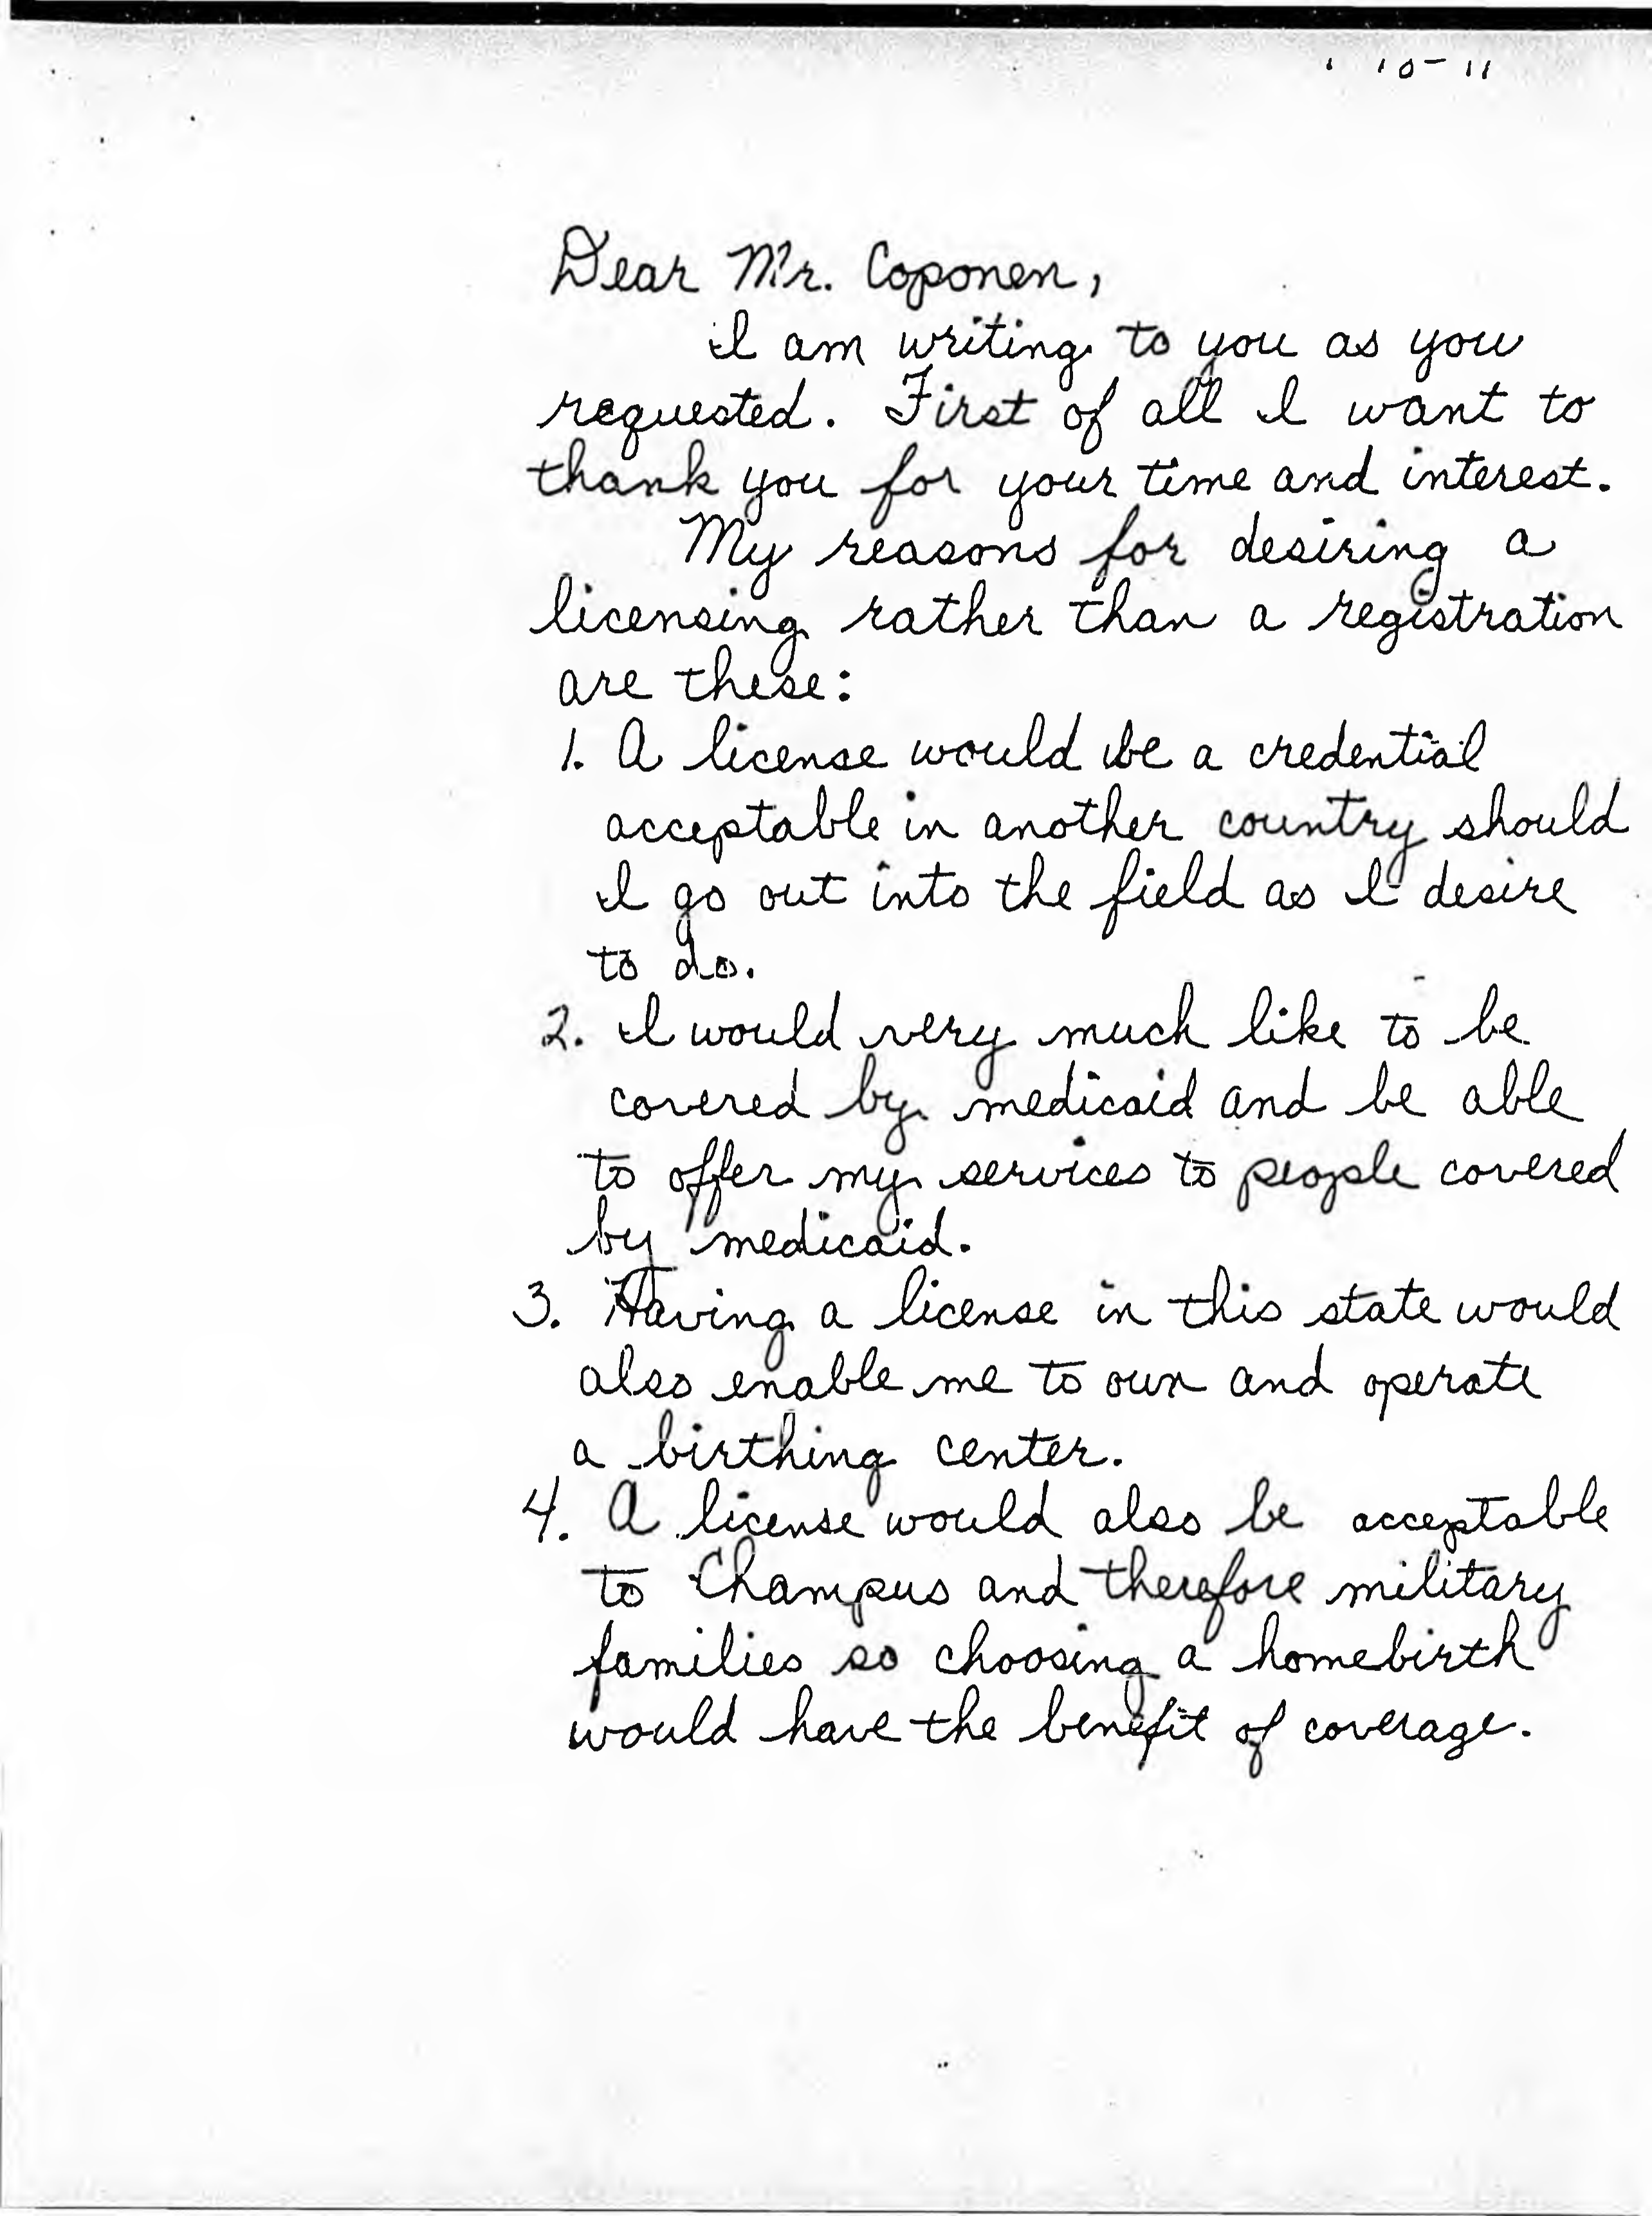 10-11
Dear Mr. Coponen,
I am writing to you as you
requested. First of all I want to
thank you for your time and interest.
My reasons for desiring a
licensing rather than a registration
are these:
1. A license would be a credential
acceptable in another country should
I go out into the field as I desire
to do.
2. I would very much like to be
covered by medicaid and be able
to offer my services to people covered
by medicaid.
3. Having a license in this state would
also enable me to own and operate
a birthing center.
4. A license would also be acceptable
to Champus and therefore military
families so choosing a homebirth
would have the benefit of coverage.